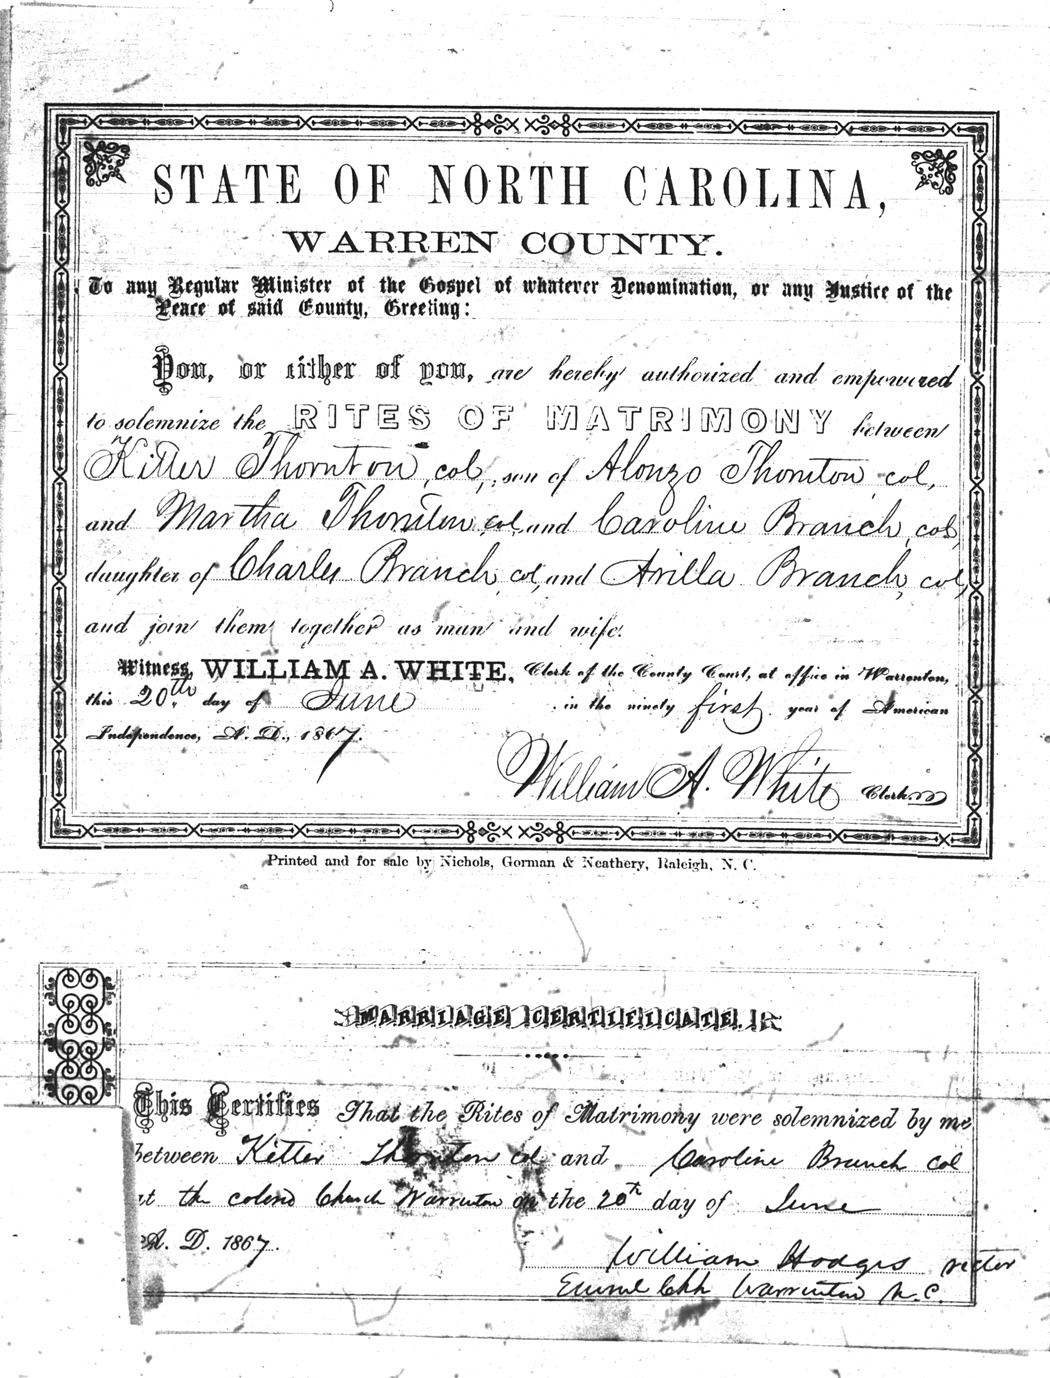 STATE OF NORTH CAROLINA,
WARREN COUNTY.
To any Regular Minister of the Gospel of whatever Denomination, or any Justice of the
Peace of said County, Greeting:
You, or either of you, are hereby authorized and empowered
to solemnize the RITES OF MATRIMONY between
Kitter Thornton, col, son of Alonzo Thornton, col,
and Martha Thornton, col, and Caroline Branch, col,
daughter of Charles Branch, col, and Arilla Branch, col,
and join them together as man and wife.
Witness, WILLIAM A. WHITE, Clerk of the County Court, at office in Warrenton,
this 20th day of June in the ninety first year of American
Independence, A. D., 1867.
William A. White Clerk
Printed and for sale by Nichols, Gorman & Neathery, Raleigh, N. C.
MARRIAGE CERTIFICATE.
This Certifies That the Rites of Matrimony were solemnized by me
between Kitter Thornton col and Caroline Branch col
at the colored Church Warrenton on the 20th day of June
A. D. 1867.
William Hodges rector
Warrenton N.C.